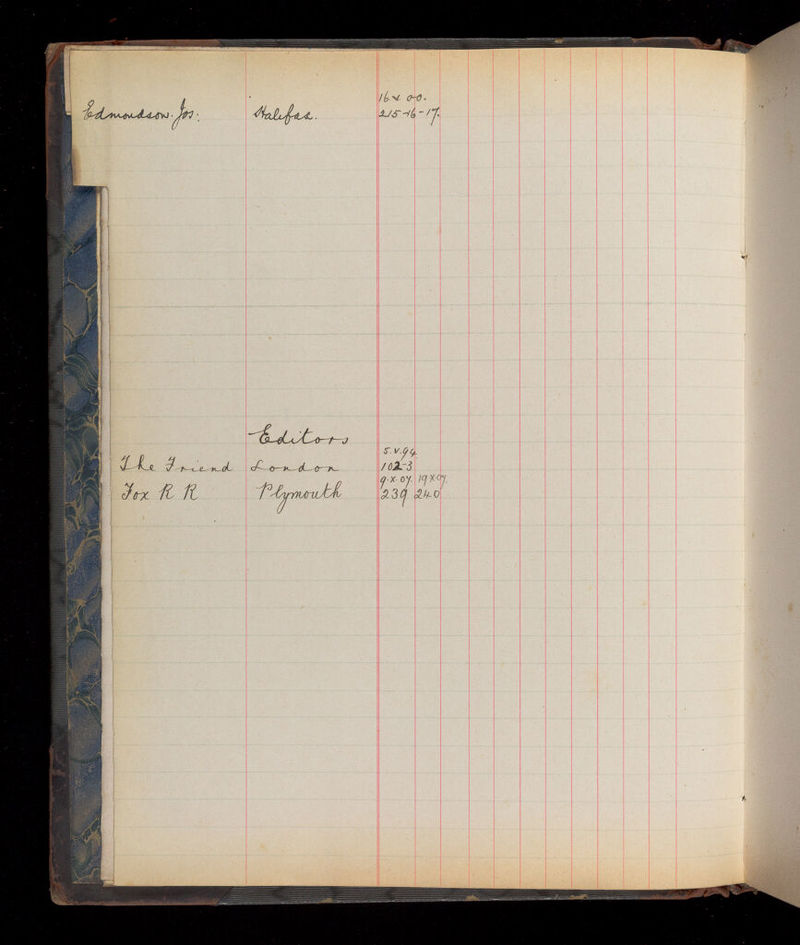 16 x 00.
Edmondson. Jos: Halifax. 215-16-17.
Editors
5.V.94
The Friend London 102-3
9.X.07 19X07
Fox R R Plymouth 239 240